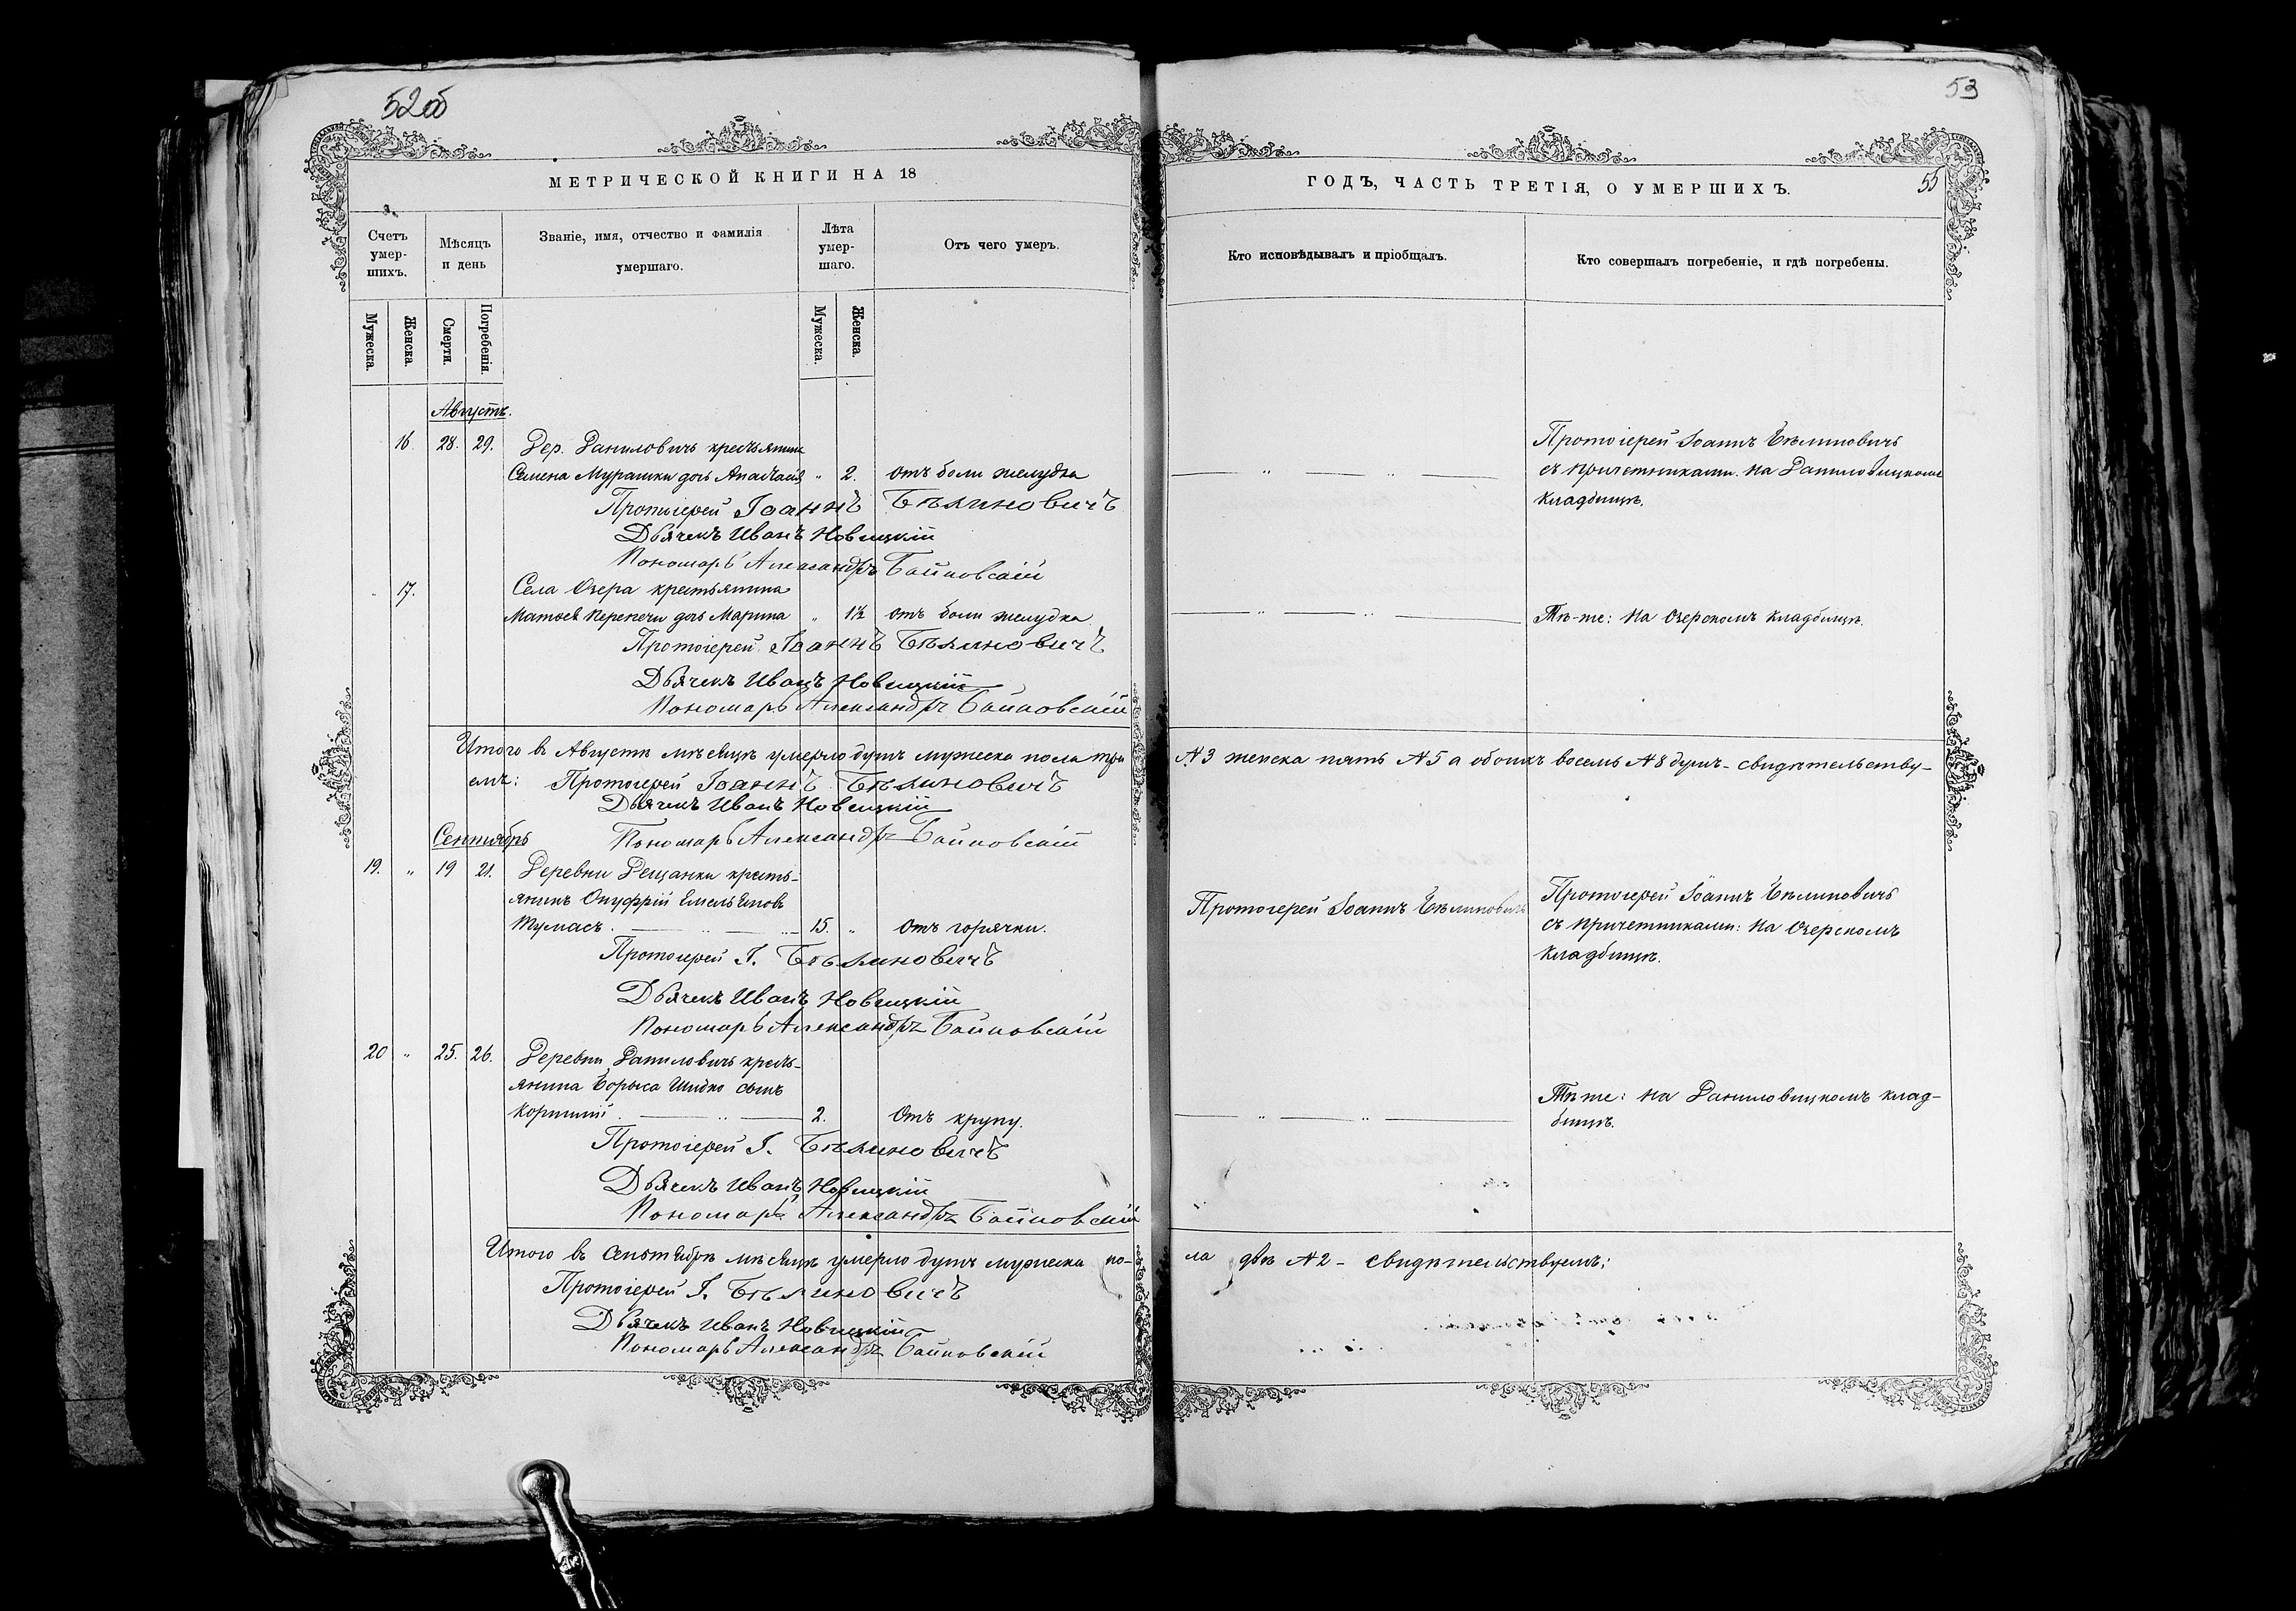 52об
МЕТРИЧЕСКОЙ КНИГИ НА 18
Счетъ умер-шихъ.
Мѣсяцъ и день
Званіе, имя, отчество и фамилія умершаго.
Лѣта умер-шаго.
Отъ чего умеръ.
Мужеска.
Женска.
Смерти.
Погребенія.
Мужеска.
Женска.
Августъ.
16 28. 29. Дер. Даниловичъ крестьянина
Семена Мурашки дочь Анастасія " 2. отъ боли желудка
Протоіерей Іоаннъ Бѣлиновичъ
Дьячекъ Иванъ Новицкій
Пономарь Александръ Байковскій
" 17. Села Озера крестьянина
Матвея Перепечи дочь Марина " 1½ отъ боли желудка
Протоіерей Іоаннъ Бѣлиновичъ
Дьячекъ Иванъ Новицкій
Пономарь Александръ Байковскій
Итого въ Августѣ мѣсяцѣ умерло душъ мужеска пола три
емъ: Протоіерей Іоаннъ Бѣлиновичъ
Дьячекъ Иванъ Новицкій
Пономарь Александръ Байковскій
Сентябрь
19. " 19 21. Деревни Рещанки кресть-
янинъ Онуфрій Емельяновъ
Тумасъ. 15. " Отъ горячки.
Протоіерей І. Бѣлиновичъ
Дьячекъ Иванъ Новицкій
Пономарь Александръ Байковскій
20 " 25. 26. Деревни Даниловичъ кресть-
янина Бориса Шидко сынъ
Корнилій. 2. Отъ крупу.
Протоіерей І. Бѣлиновичъ
Дьячекъ Иванъ Новицкій
Пономарь Александръ Байковскій
Итого въ Сентябрѣ мѣсяцѣ умерло душъ мужеска по-
Протоіерей І. Бѣлиновичъ
Дьячекъ Иванъ Новицкій
Пономарь Александръ Байковскій
53
ГОДЪ, ЧАСТЬ ТРЕТІЯ, О УМЕРШИХЪ.
55
Кто исповѣдывалъ и пріобщалъ.
Кто совершалъ погребеніе, и гдѣ погребены.
Протоіерей Іоаннъ Бѣлиновичъ
съ причетниками. на Даниловицкомъ
кладбищѣ.
Тѣ-же: на Озерскомъ кладбищѣ.
№3 женска пять №5 а обоихъ восемь №8 душъ - свидѣтельству-
Протоіерей Іоаннъ Бѣлиновичъ
Протоіерей Іоаннъ Бѣлиновичъ
съ причетниками: на Озерскомъ
кладбищѣ.
Тѣже: на Даниловицкомъ клад-
бищѣ.
ла двѣ №2 - свидѣтельствуемъ: